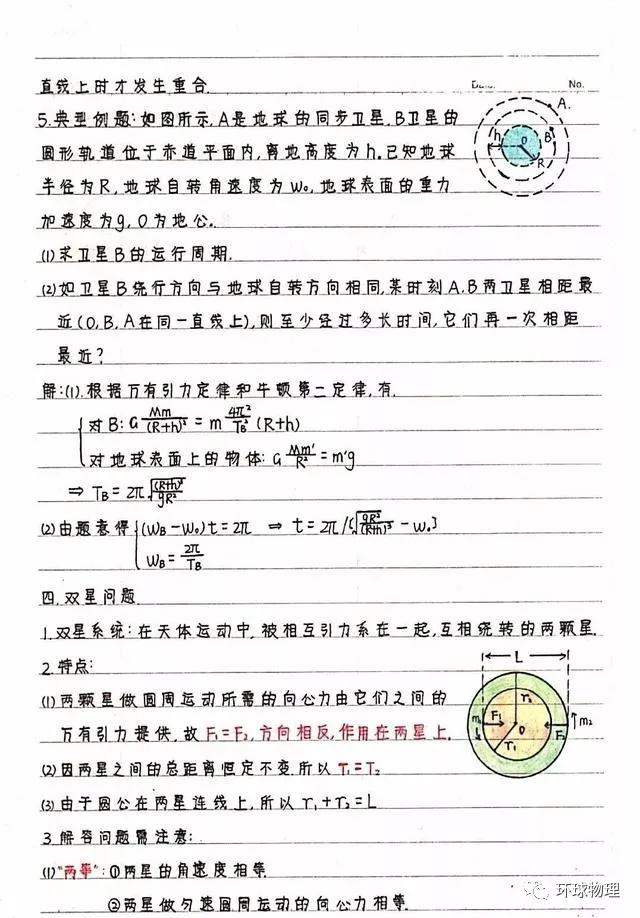 直线上时才发生重合
No.
5.典型例题:如图所示,A是地球的同步卫星,B卫星的
圆形轨道位于赤道平面内,离地高度为h.已知地球
半径为R,地球自转角速度为ω₀,地球表面的重力
加速度为g,O为地心.
A.
B
h
O
R
(1)求卫星B的运行周期.
(2)如卫星B绕行方向与地球自转方向相同,某时刻A.B两卫星相距最
近(O,B,A在同一直线上),则至少经过多长时间,它们再一次相距
最近?
解:(1).根据万有引力定律和牛顿第二定律,有.
对B: G Mm/(R+h)² = m 4π²/T_B² (R+h)
对地球表面上的物体: G Mm'/R² = m'g
⇒ T_B = 2π√((R+h)³/gR²)
(2)由题意得 {(ω_B-ω₀)t=2π ⇒ t=2π/[√(gR²/(R+h)³) - ω₀]
ω_B = 2π/T_B
四.双星问题
1.双星系统:在天体运动中,被相互引力系在一起,互相绕转的两颗星.
2.特点:
(1)两颗星做圆周运动所需的向心力由它们之间的
万有引力提供,故F₁=F₂,方向相反,作用在两星上.
(2)因两星之间的总距离恒定不变.所以T₁=T₂
(3)由于圆心在两星连线上,所以r₁+r₂=L
L
r₂
F₁
O
m₂
r₁
3.解答问题需注意:
(1)"两等":①两星的角速度相等
②两星做匀速圆周运动的向心力相等.
环球物理